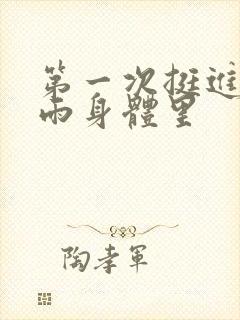 第一次挺進
雨身體里
陶孝軍